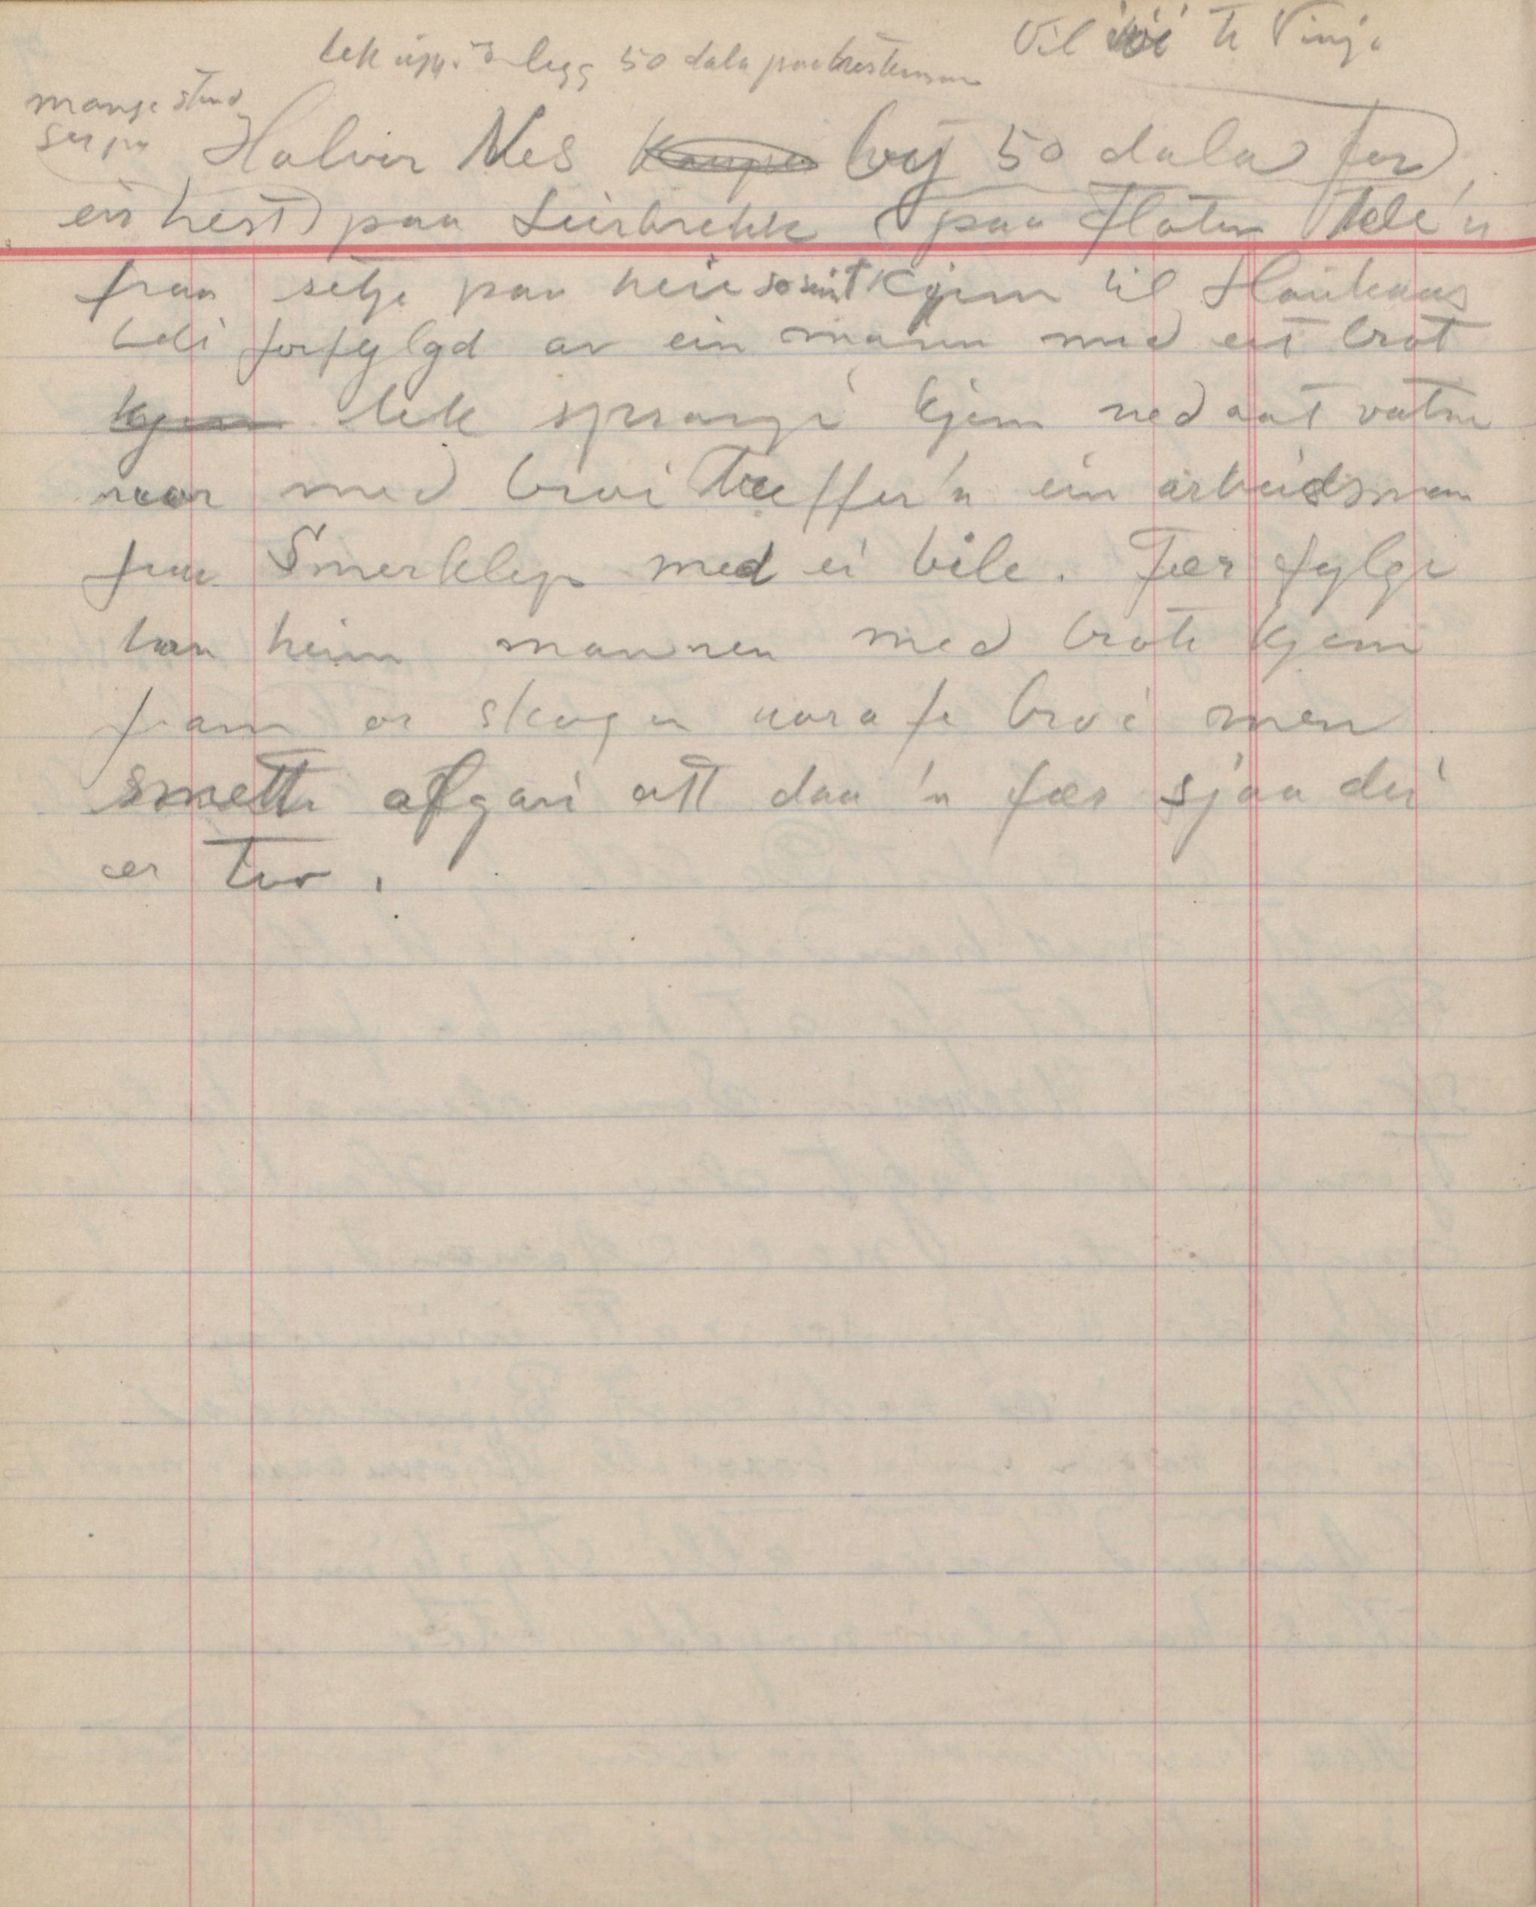 Vil te Vinje
tek upp å legg 50 dala paa
mange stad
ser pu
Halvor Nes bÿ 50 dala fer
ein hest paa Leirbrekk paa Flóten
fraa setje paa heie so snit kjem til Haukaas
beli forfylgd av ein mann med eit brot
kjem tek sprangi kjem ned aat vatne
naar med broi treffer'n ein arbeidsman
fraa Smerklep med ei bile. Fær fylgje
han heim mannen med brote kjem
fram or skogen nora fe broi men
smette afgari att daa 'n fær sjaa dei
er tvo.